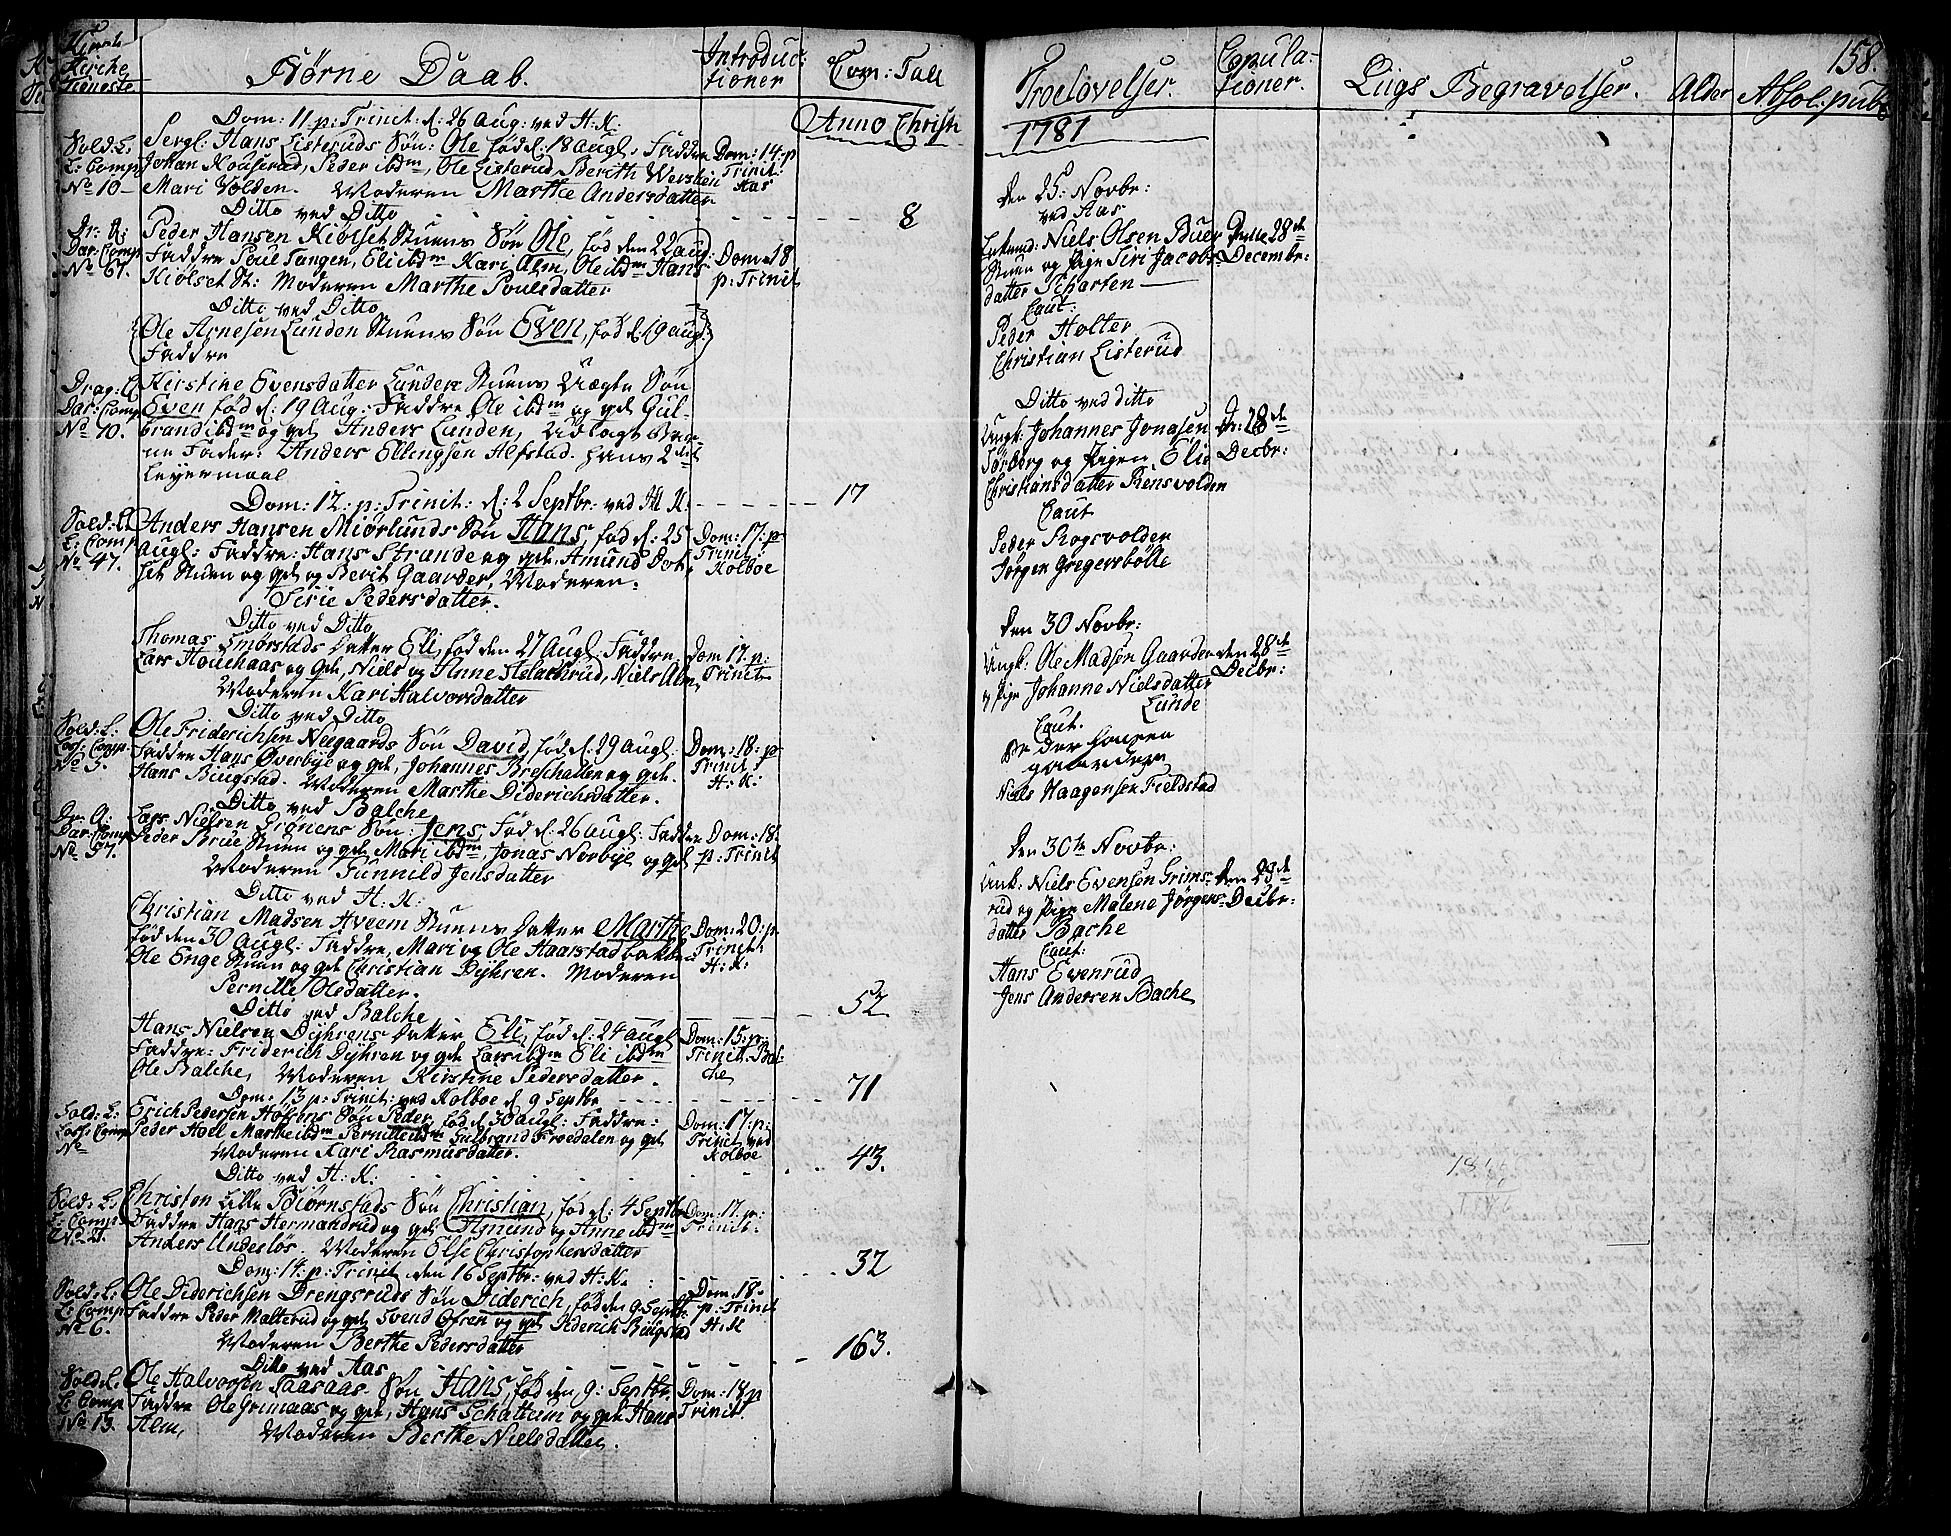 158.
Kirche
Tieneste
Børne Daab.
Introduc:
tioner
Com: Tall
Anno Christi
Dom: 11. p: Trinit: d: 26 Aug: ved H: K:
Sold: L:
L: Comp
No 10
Sergt: Hans Listeruds Søn: Ole fød d: 18 Augl. Faddre
Johan Kouserud, Peder ibdm, Ole Listerud, Berith Wersten
Mari Volden. Moderen Marthe Andersdatter
Dom: 14: p
Trinit:
Aas
Ditto ved Ditto
8
Dr: R:
Dar: Comp
No 67.
Peder Hansen Kiølset Stuens Søn Ole, fød den 22 aug:
Faddre Poul Tangen, Eli ibdm Kari Alm, Ole ibdm Hans
Kiølset St: Moderen Marthe Poulsdatter
Dom: 18
p: Trinit
Ditto ved Ditto
Ole Arnesen Lunden Stuens Søn Even, fød d: 19 aug:
Faddre
Drag: R
Dar: Comp
No 10.
Kirstine Evensdatter Lunden Stuens Uægte Søn
Even fød d: 19 Aug: Faddre Ole ibdm og gel Gul-
brand ibdm og gel Anders Lunden, Udlagt Bar-
ne Fader: Anders Ellingsen Alfstad. hans 2det
Leyermaal
Dom: 12: p: Trinit: d: 2 Septbr: ved H K:
17
Sold: L:
L: Comp
No 47.
Anders Hansen Miørlunds Søn Hans, fød d: 25
Augl: Faddre: Hans Strande og gel. Amund Dot-
set Stuen og gel og Berit Gaarder, Moderen:
Sirie Pedersdatter.
Dom: 17: p
Trinit:
Kolboe
Ditto ved Ditto
Thomas Smørstads Datter Eli, fød den 27 Augl. Faddre
Lars Houghaas og gel, Niels og Anne Helachrud, Niels Alm,
Moderen Kari Halvorsdatter
Dom 17. p:
Trinit
Ditto ved Ditto
Sold: L:
Comp
No 5.
Ole Friderichsen Neegaards Søn David, fød d: 29 Augl:
Faddre Hans Øverbye og gel, Johannes Breschallen og gel.
Hans Bingstad. Moderen Marthe Diderichsdatter.
Dom: 18: p
Trinit:
H: K:
Ditto ved Balche
Dr: R:
Dar: Comp
No 37.
Lars Nielsen Grønens Søn: Jens, Fød d: 26 augl: Faddre
Peder Brue Stuen og gel Mari ibdm, Jonas Nerbye og gel
Moderen Gunnild Jensdatter
Dom: 18
p: Trinit
Ditto ved H: K:
Christian Madsen Aveem Stuens Datter Marthe
fød den 30 Augl: Faddre, Mari og Ole Haarstadbakken
Ole Enge Stuen og gel Christian Dyhren. Moderen
Pernille Olsdatter.
Dom: 20: p
Trinit:
H: K:
Ditto ved Balche
52
Hans Nielsen Dyhrens Datter Eli, fød d: 24 augl
Faddre: Friderich Dyhren og gel Lars ibdm Eli ibdm
Ole Balche, Moderen Kirstine Pedersdatter.
Dom: 15: p
Trinit: Bal-
che
Dom: 13 p: Trinit: ved Kolboe d. 9 Septbr
71
Sold: L:
Comp
No
Erich Pedersen Høtens Søn Peder, fød d 30 augl: Faddre:
Peder Hoel Marthe ibdm Pernille ibdm Gulbrand Froedalen og gel
Moderen Kari Rasmusdatter.
Dom: 17: p:
Trinit ved
Kolboe
Ditto ved H: K:
43.
Sold: L:
L: Comp
No 21.
Christen Lille Biørnstads Søn Christian, fød d: 4 Septbr
Faddre Hans Hermandrud og gel. Amund og Anne ibdm
Anders Undesløs. Moderen Else Christophersdatter
Dom: 17. p:
Trinit:
Dom: 14: p: Trinit den 16 Septbr: ved H: K:
32
Sold: L:
L: Comp
No 6.
Ole Diderichsen Drengsruds Søn Diderich, fød den 9 Septbr:
Faddre Peder Malterud og gel Svend Ofren og gel Diderich Bingstad
Moderen Berthe Pedersdatter
Dom: 18.
p: Trinit
H: K
Ditto ved Aas
163.
Sold: L.
L: Comp
No 13.
Ole Halvorsen Taasaas Søn Hans, fød den 9: Septbr
Faddre Ole Grimaas og gel, Hans Schattum og gel Hans
Alm, Moderen Berthe Nielsdatter.
Dom: 18 p
Trinit.
Troelovelser.
Copula-
tioner.
Liigs Begravelser.
Alder
Absol: publ
1781
den 25: Novbr:
ved Aas
Enkemd: Niels Olsen Buer
Stuen og Pige Siri Jacobs-
datter Scharten
Caut:
Peder Holter
Christian Listerud
28de
Decembr:
Ditto ved ditto
Ungk: Johannes Jonasen
Sørborg og Pigen Elie
Christiansdatter Rensvolden
Caut
Peder Rogsvolden
Jørgen Gregersbølle
D: 28de
Decbr:
Den 30 Novbr:
Ungk: Ole Madsen Gaarder
og Pige Johanne Nielsdatter
Lunde
Caut.
Peder Hansen
gaarder
Niels Haagensen Fieldstad
den 28de
Decbr:
Den 30te Novbr:
Unk: Niels Evensen Grims-
rud og Pige Malene Jørgens-
datter Bache
Caut:
Hans Evenrud
Jens Andersen Bache
den 29de
Decbr: